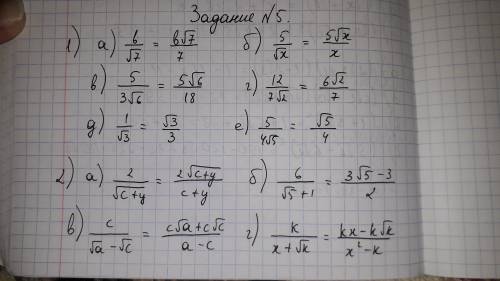 Задание №5.
1) а) в/√7 = в√7/7 б) 5/√x = 5√x/x
в) 5/3√6 = 5√6/18 г) 12/7√2 = 6√2/7
д) 1/√3 = √3/3 е) 5/4√5 = √5/4
2) а) 2/√(c+y) = 2√(c+y)/(c+y) б) 6/(√5+1) = (3√5-3)/2
в) c/(√a-√c) = (c√a+c√c)/(a-c) г) k/(x+√k) = (kx-k√k)/(x²-k)